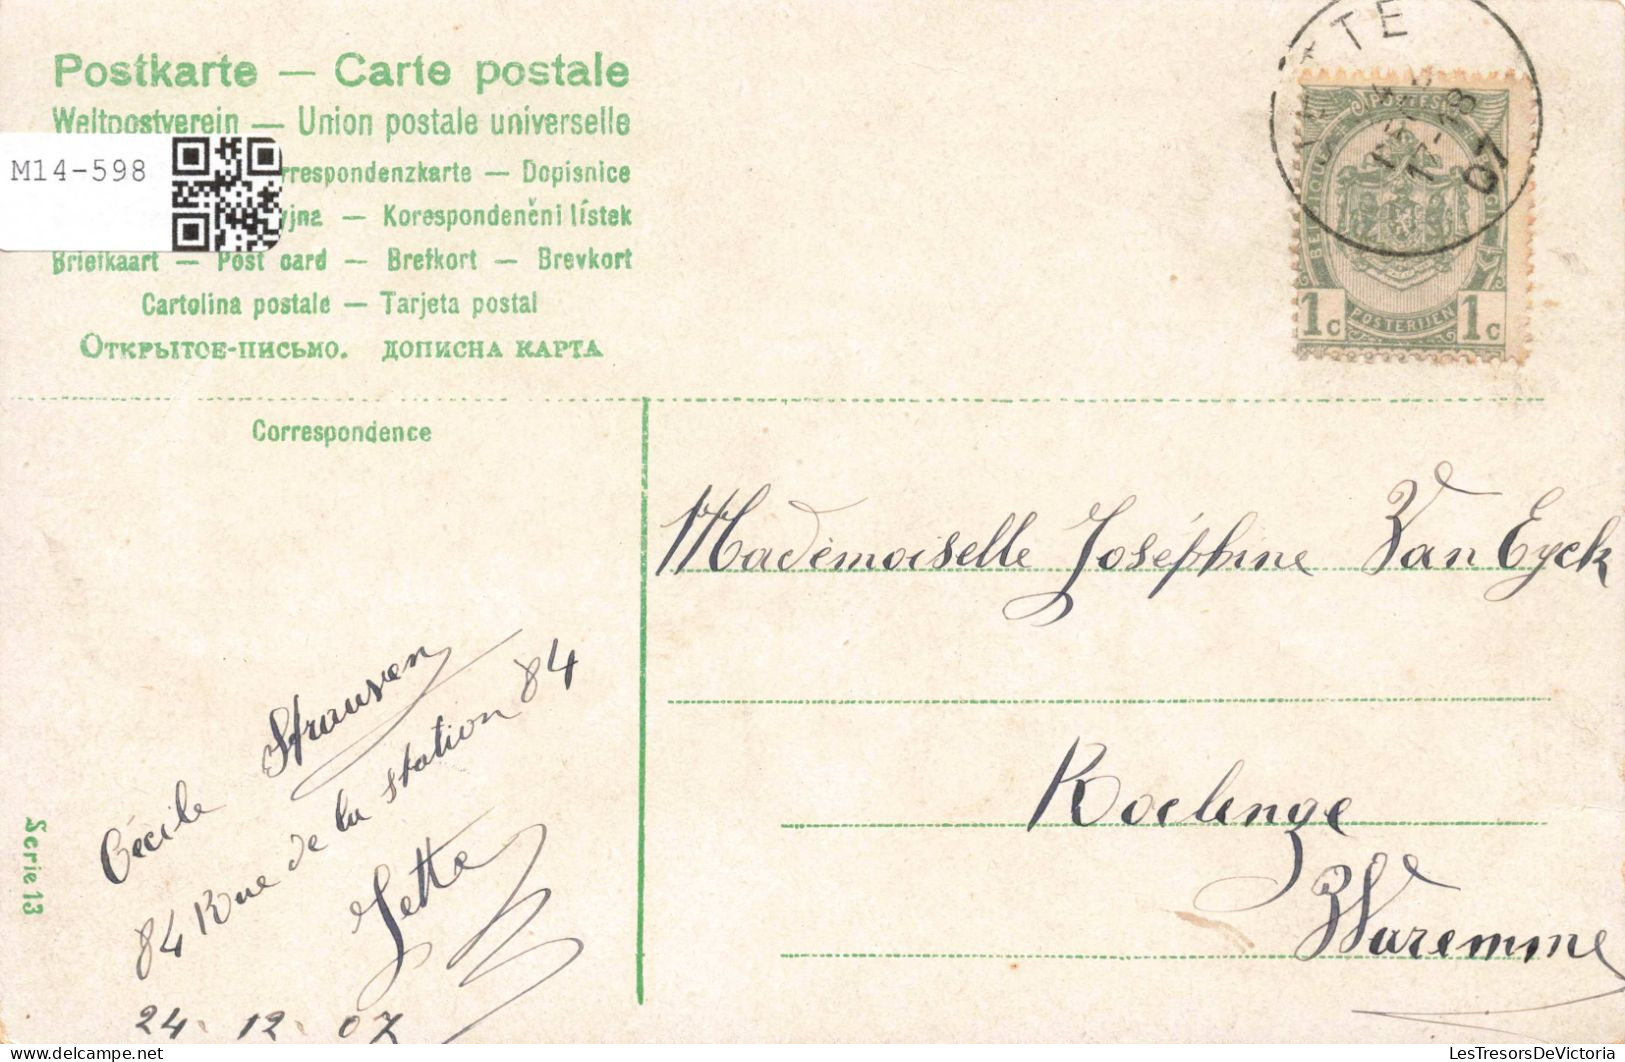 Postkarte — Carte postale
Weltpostverein — Union postale universelle
M14-598
rrespondenzkarte — Dopisnice
yjna — Korespondenční lístek
Briefkaart — Post card — Brefkort — Brevkort
Cartolina postale — Tarjeta postal
Открытое-письмо. дописна карта
Correspondence
TTE
07
POSTES
POSTERIJEN
1c 1c
Mademoiselle Joséphine Van Eyck
Roclenge
Waremme
Cécile Strauven
84 Rue de la station 84
Jette
24. 12. 07
Serie 13
LesTresorsDeVictoria